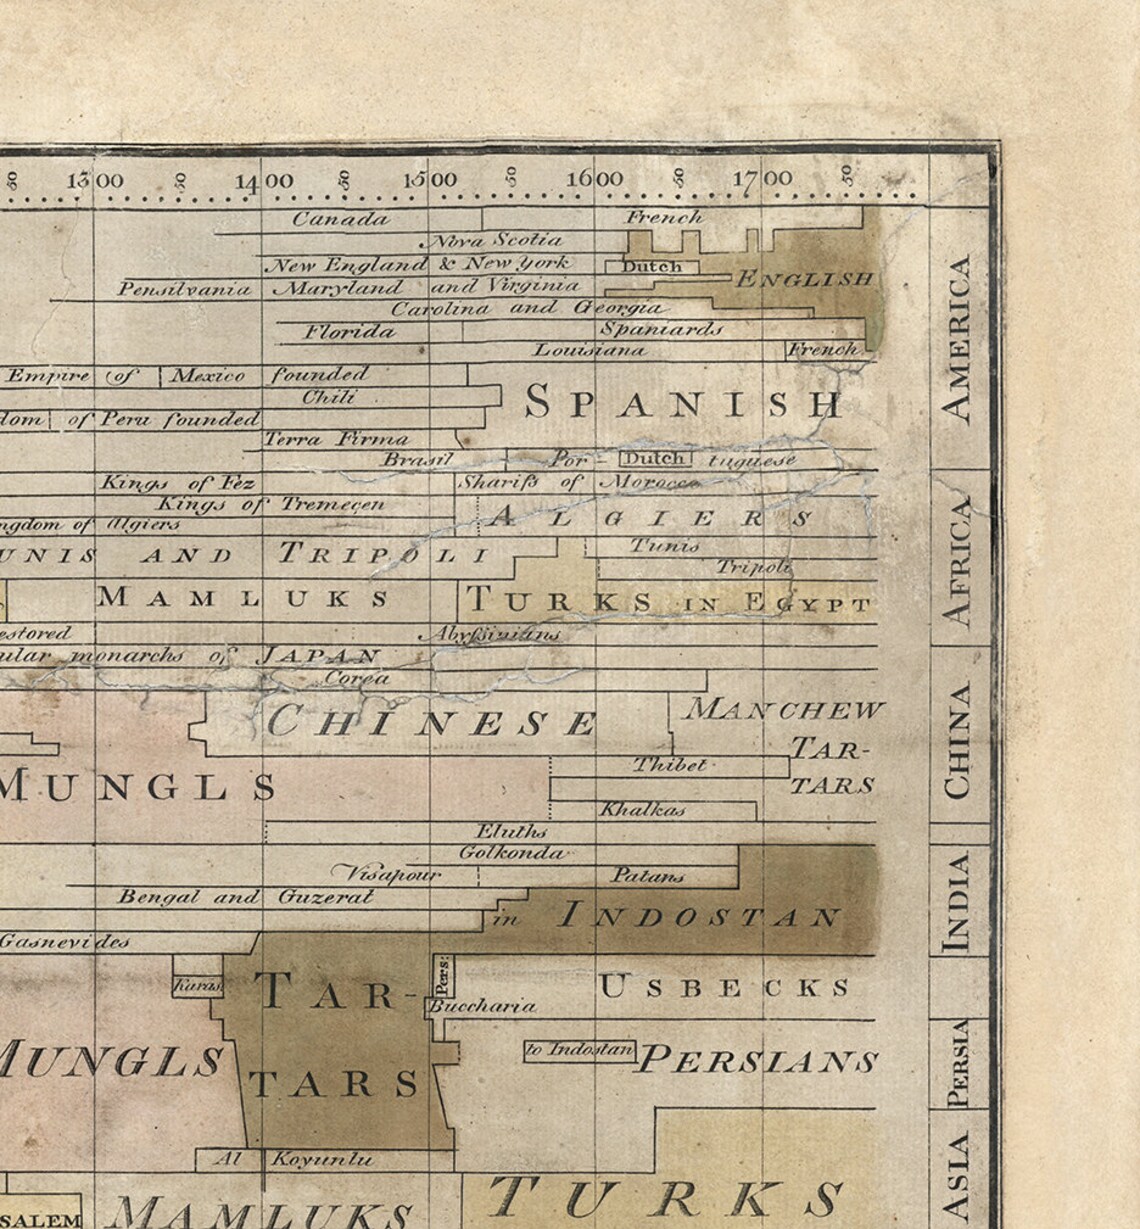 50 1300 50 1400 50 1500 50 1600 50 1700 50
Canada French
Nova Scotia
New England & New York Dutch
ENGLISH
Pensilvania Maryland and Virginia
Carolina and Georgia
Florida Spaniards
Louisiana French
AMERICA
Empire of Mexico founded
Chili
SPANISH
dom of Peru founded
Terra Firma
Brasil Por- Dutch tuguese
Kings of Fez Sharifs of Morocco
Kings of Tremecen
ngdom of Algiers ALGIERS
UNIS AND TRIPOLI Tunis
Tripoli
AFRICA
MAMLUKS TURKS IN EGYPT
estored Abyssinians
ular monarchs of JAPAN
Corea
CHINESE MANCHEW
TAR-
TARS
CHINA
Thibet
MUNGLS
Khalkas
Eluths
Golkonda
Visapour Patans
Bengal and Guzerat
in INDOSTAN
INDIA
Gasnevides
Karas
TAR-
TARS
Pers:
USBECKS
Buccharia
MUNGLS
to Indostan PERSIANS
PERSIA
Al Koyunlu
SALEM MAMLUKS TURKS
ASIA